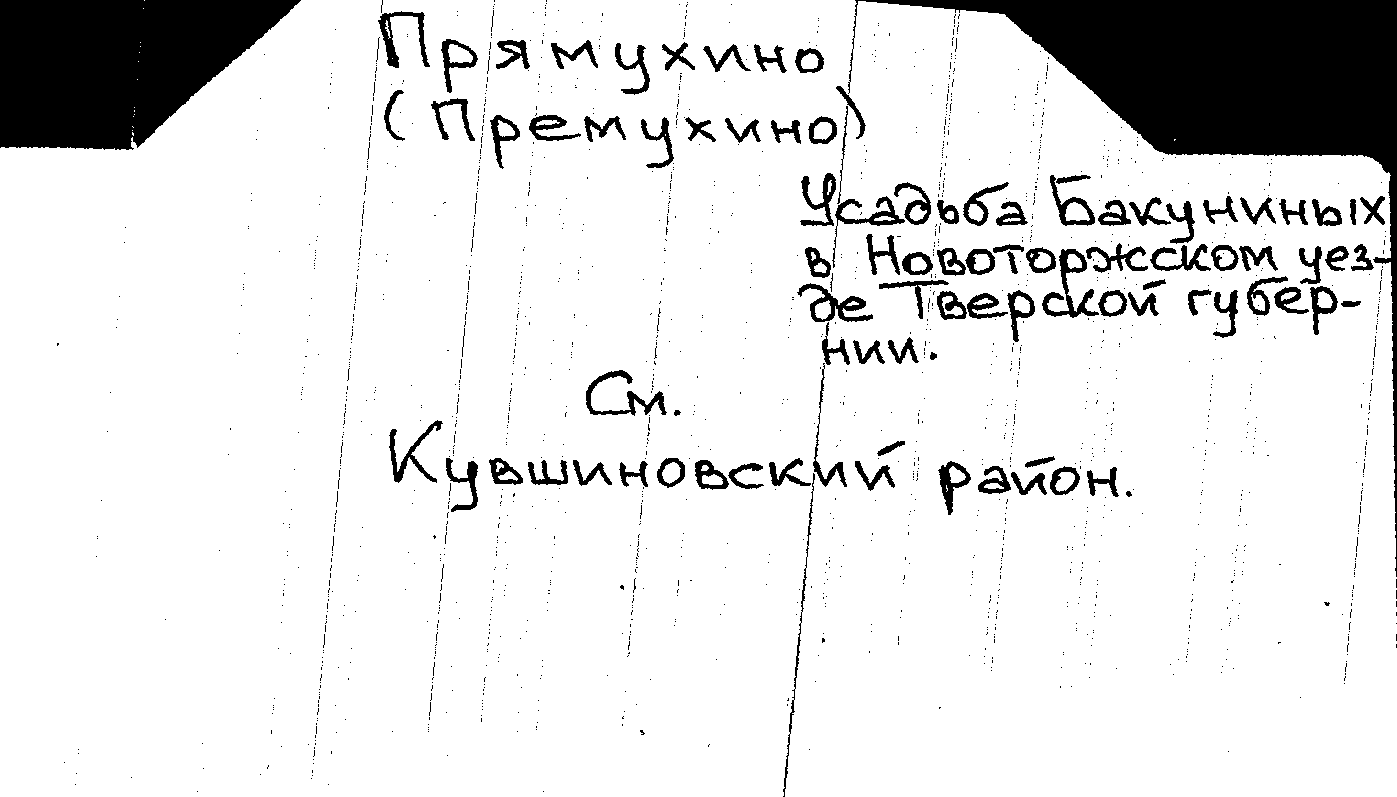 Прямухино
(Премухино)
Усадьба Бакуниных
в Новоторжском уез-
де Тверской губер-
нии.
См.
Кувшиновский район.